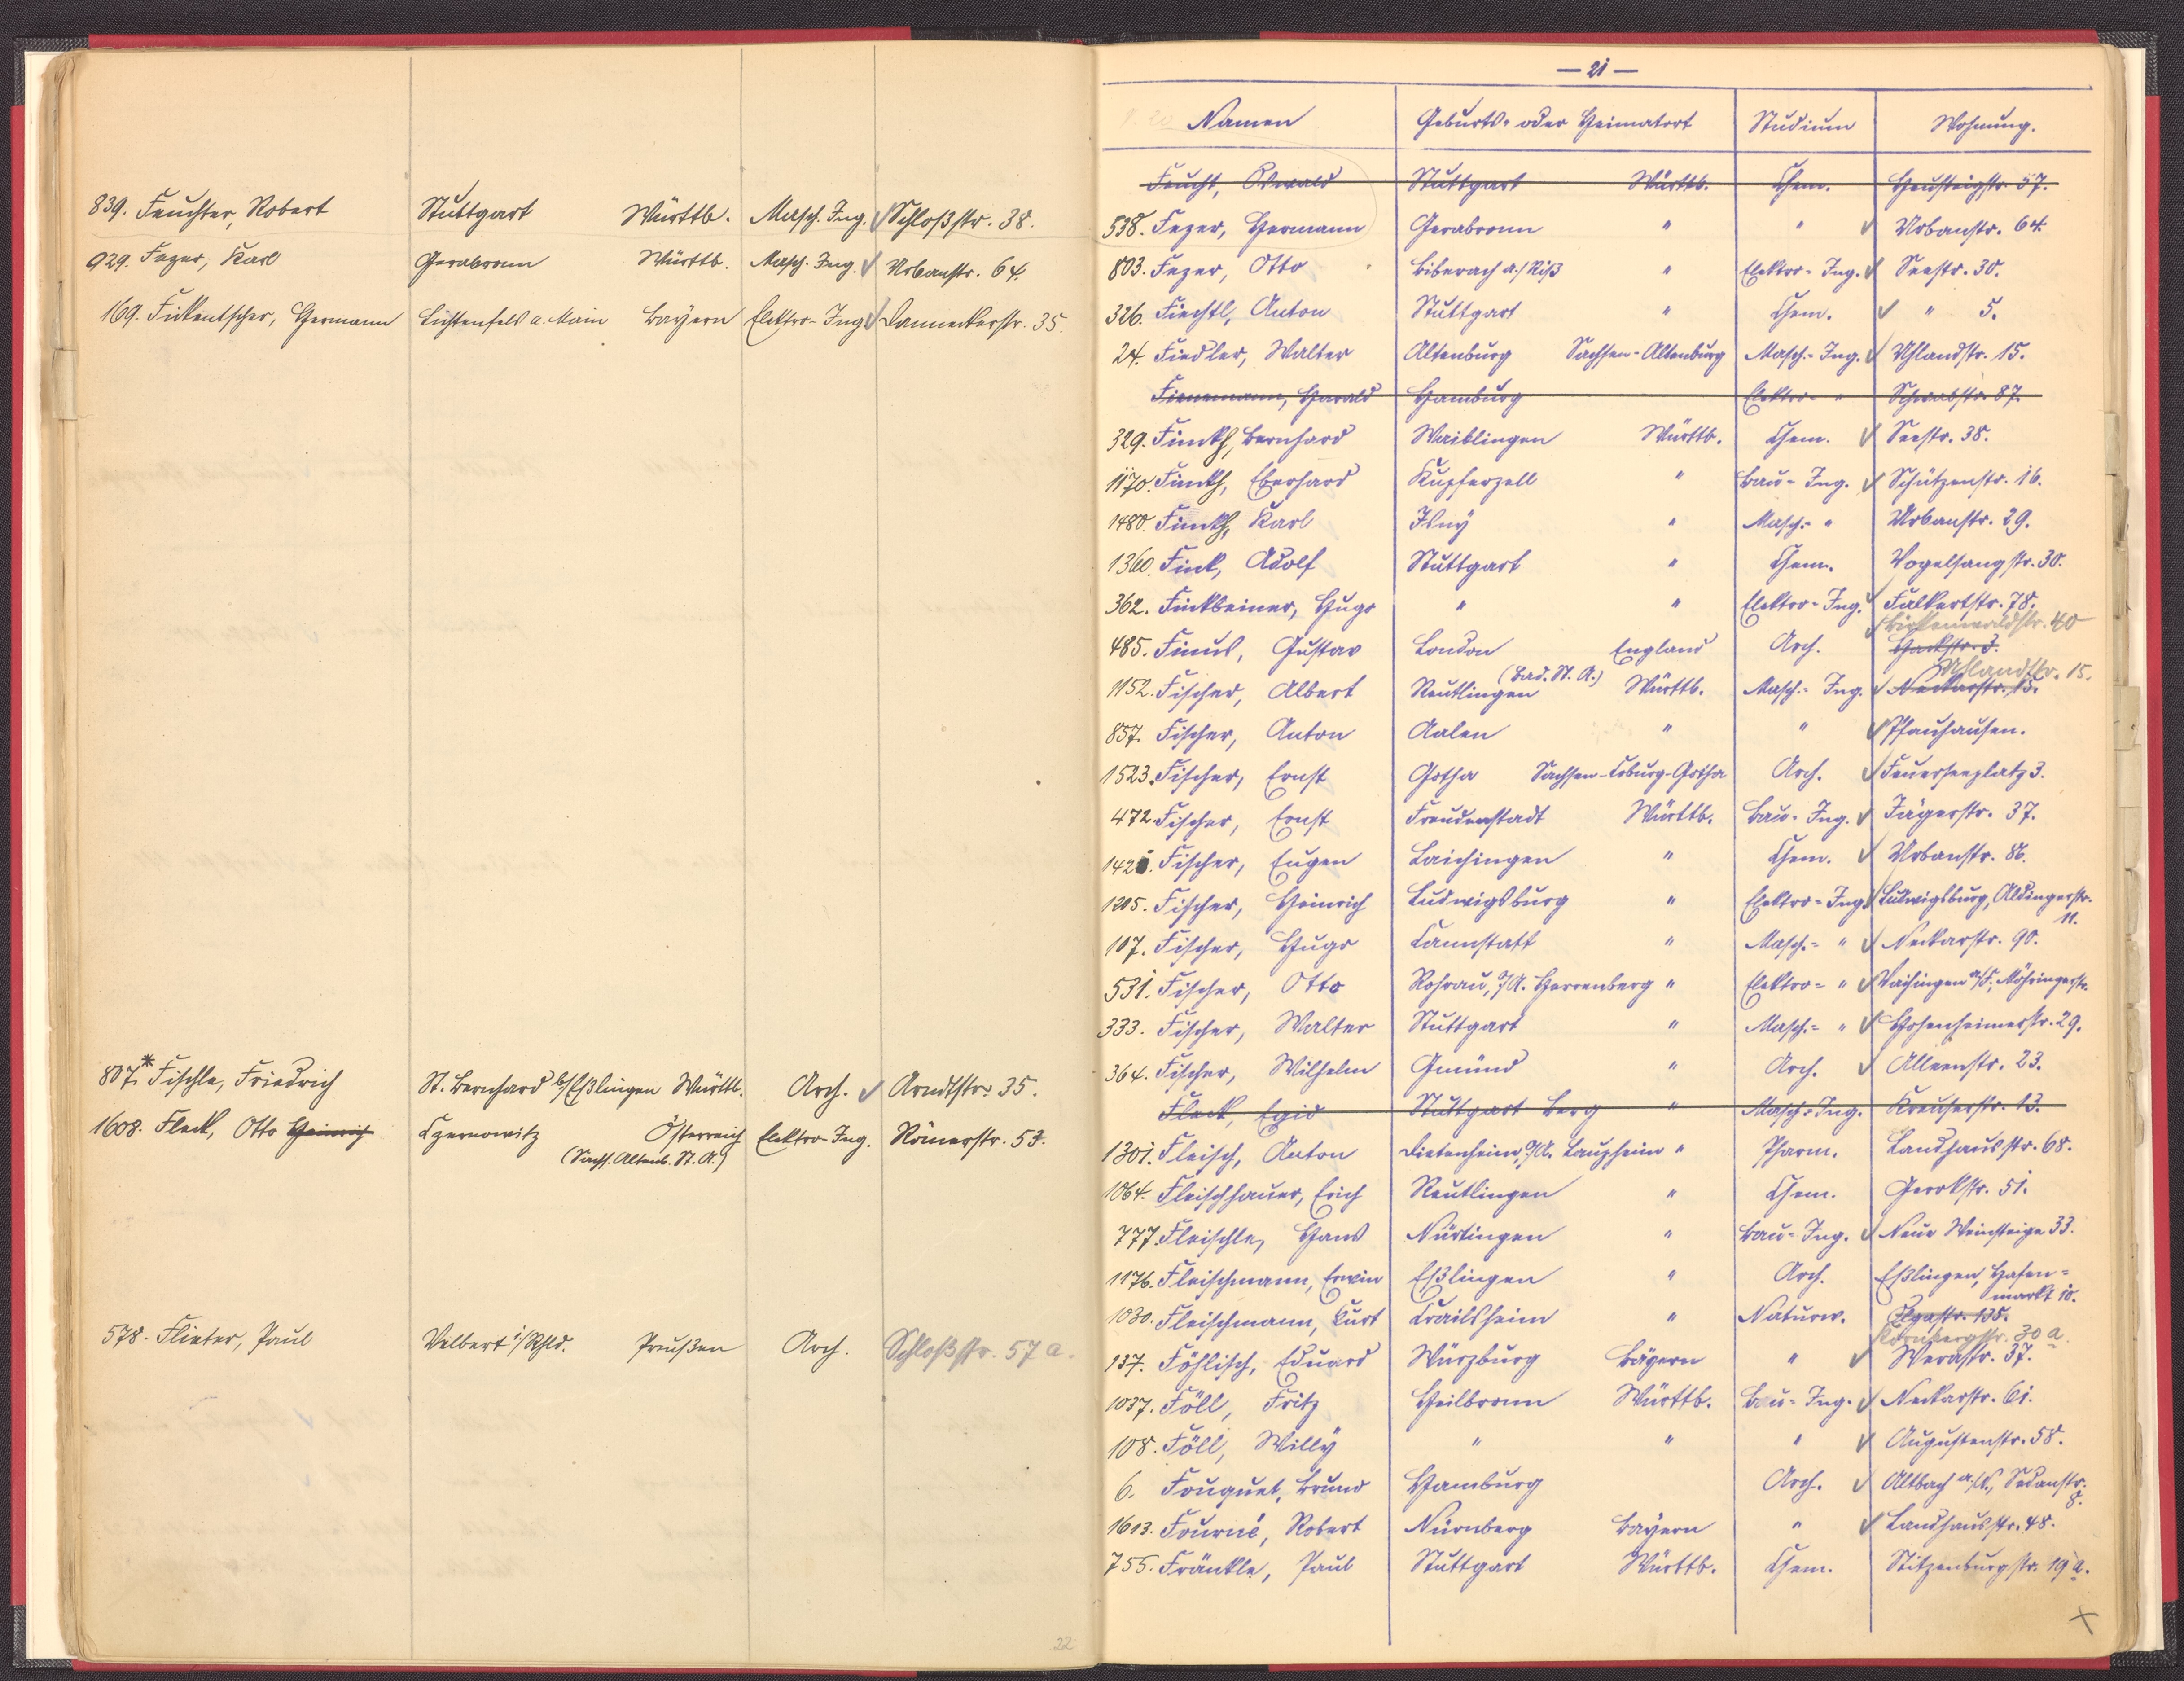 839. Feuchter, Robert Stuttgart Württb. Masch. Ing. ✓ Schloßstr. 38.
929. Fezer, Karl Gerabronn Württb. Masch. Ing. ✓ Urbanstr. 64.
169. Fikentscher, Hermann Lichtenfels a. Main Bayern Elektro-Ing. ✓ Danneckerstr. 35.
807.* Fischle, Friedrich St. Bernhard b/Eßlingen Württb. Arch. ✓ Arndtstr. 35.
1608. Fleck, Otto Heinrich Czernowitz Österreich Elektro-Ing. Römerstr. 53.
(Sachs. Altenb. St. A.)
578. Flieter, Paul Velbert i/Rhld. Preußen Arch. Schloßstr. 57 a.
22
— 21 —
Namen Geburts- oder Heimatort Studium Wohnung.
Feucht, Oswald Stuttgart Württb. Chem. Heusteigstr. 57.
538. Fezer, Hermann Gerabronn " " ✓ Urbanstr. 64.
803. Fezer, Otto Biberach a./Riß " Elektro-Ing. ✓ Seestr. 30.
326. Fiechtl, Anton Stuttgart " Chem. ✓ " 5.
24. Fiedler, Walter Altenburg Sachsen-Altenburg Masch.-Ing. ✓ Uhlandstr. 15.
Fienemann, Harald Hamburg Elektro- " Schwabstr. 87.
329. Finckh, Bernhard Waiblingen Württb. Chem. ✓ Seestr. 38.
1170. Finckh, Eberhard Kupferzell " Bau-Ing. ✓ Schützenstr. 16.
1480. Finckh, Karl Isny " Masch.- " Urbanstr. 29.
1360. Fink, Adolf Stuttgart " Chem. Vogelsangstr. 30.
362. Finkbeiner, Hugo " " Elektro-Ing. ✓ Falkertstr. 78.
Birkenwaldstr. 40
485. Finus, Gustav London England Arch. ✓ Hackstr. 3.
(Bad. St. A.) Uhlandstr. 15.
1152. Fischer, Albert Reutlingen Württb. Masch.-Ing. ✓ Neckarstr. 15.
857. Fischer, Anton Aalen " " ✓ Pfauhausen.
1523. Fischer, Ernst Gotha Sachsen-Coburg-Gotha Arch. ✓ Feuerseeplatz 3.
472. Fischer, Ernst Freudenstadt Württb. Bau-Ing. ✓ Jägerstr. 37.
Fischer, Eugen Laichingen " Chem. ✓ Urbanstr. 86.
1205. Fischer, Heinrich Ludwigsburg " Elektro-Ing. ✓ Ludwigsburg, Aldingerstr.
11.
107. Fischer, Hugo Cannstatt " Masch.- " ✓ Neckarstr. 90.
531. Fischer, Otto Rohrau, O/A. Herrenberg " Elektro- " ✓ Vaihingen a/F., Möhringerstr.
333. Fischer, Walter Stuttgart " Masch.- " ✓ Hohenheimerstr. 29.
364. Fischer, Wilhelm Gmünd " Arch. ✓ Alleenstr. 23.
Fleck, Egid Stuttgart Berg " Masch.-Ing. Kreuserstr. 13.
1301. Fleisch, Anton Dietenheim, O/A. Laupheim " Pharm. Landhausstr. 68.
1064. Fleischhauer, Erich Reutlingen " Chem. Gerokstr. 51.
777. Fleischle, Hans Nürtingen " Bau-Ing. ✓ Neue Weinsteige 33.
1176. Fleischmann, Erwin Eßlingen " Arch. Eßlingen, Hafen-
markt 10.
1030. Fleischmann, Curt Crailsheim " Naturw. Olgastr. 135.
Kornbergstr. 30 a.
137. Föhlisch, Eduard Würzburg Bayern " ✓ Werastr. 37.
1037. Föll, Fritz Heilbronn Württb. Bau-Ing. ✓ Neckarstr. 61.
108. Föll, Willy " " " ✓ Augustenstr. 58.
6. Fouquet, Bruno Hamburg Arch. ✓ Altbach a./N., Sedanstr.
8.
1613. Fourné, Robert Nürnberg Bayern " ✓ Landhausstr. 48.
755. Fränkle, Paul Stuttgart Württb. Chem. Stitzenburgstr. 19 a.